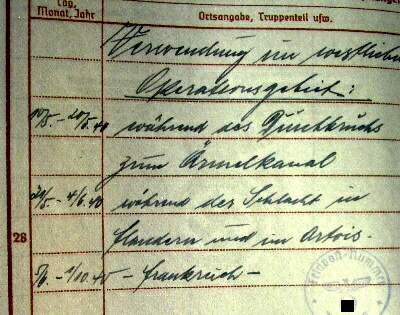 Tag, Monat, Jahr
Ortsangabe, Truppenteil usw.
Verwendung im westlichen
Operationsgebiet:
10/5. - 20/5. 40 während des Durchbruchs
zum Ärmelkanal
während der Schlacht in
28
Flandern und im Artois.
Frankreich -